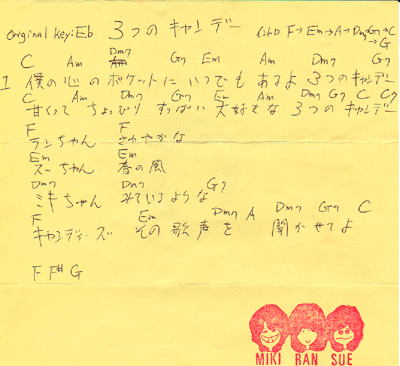 original key:Eb 3つの キャンデー イントロ F→Em→A→Dm7→G7→C
→G
C Am Dm7 G7 Em Am Dm7 G7
1 僕の心のポケットに いつでも あるよ 3つのキャンデー
C Am Dm7 G7 Em Am Dm7 G7 C C7
甘くって ちょっぴり すっぱい 大好きな 3つの キャンデー
F F
ランちゃん さわやかな
Em Em
スーちゃん 春の風
Dm7 Dm7 G7
ミキちゃん みているような
F Em Dm7 A Dm7 G7 C
キャンディーズ その歌声を 聞かせてよ
F F# G
MIKI RAN SUE